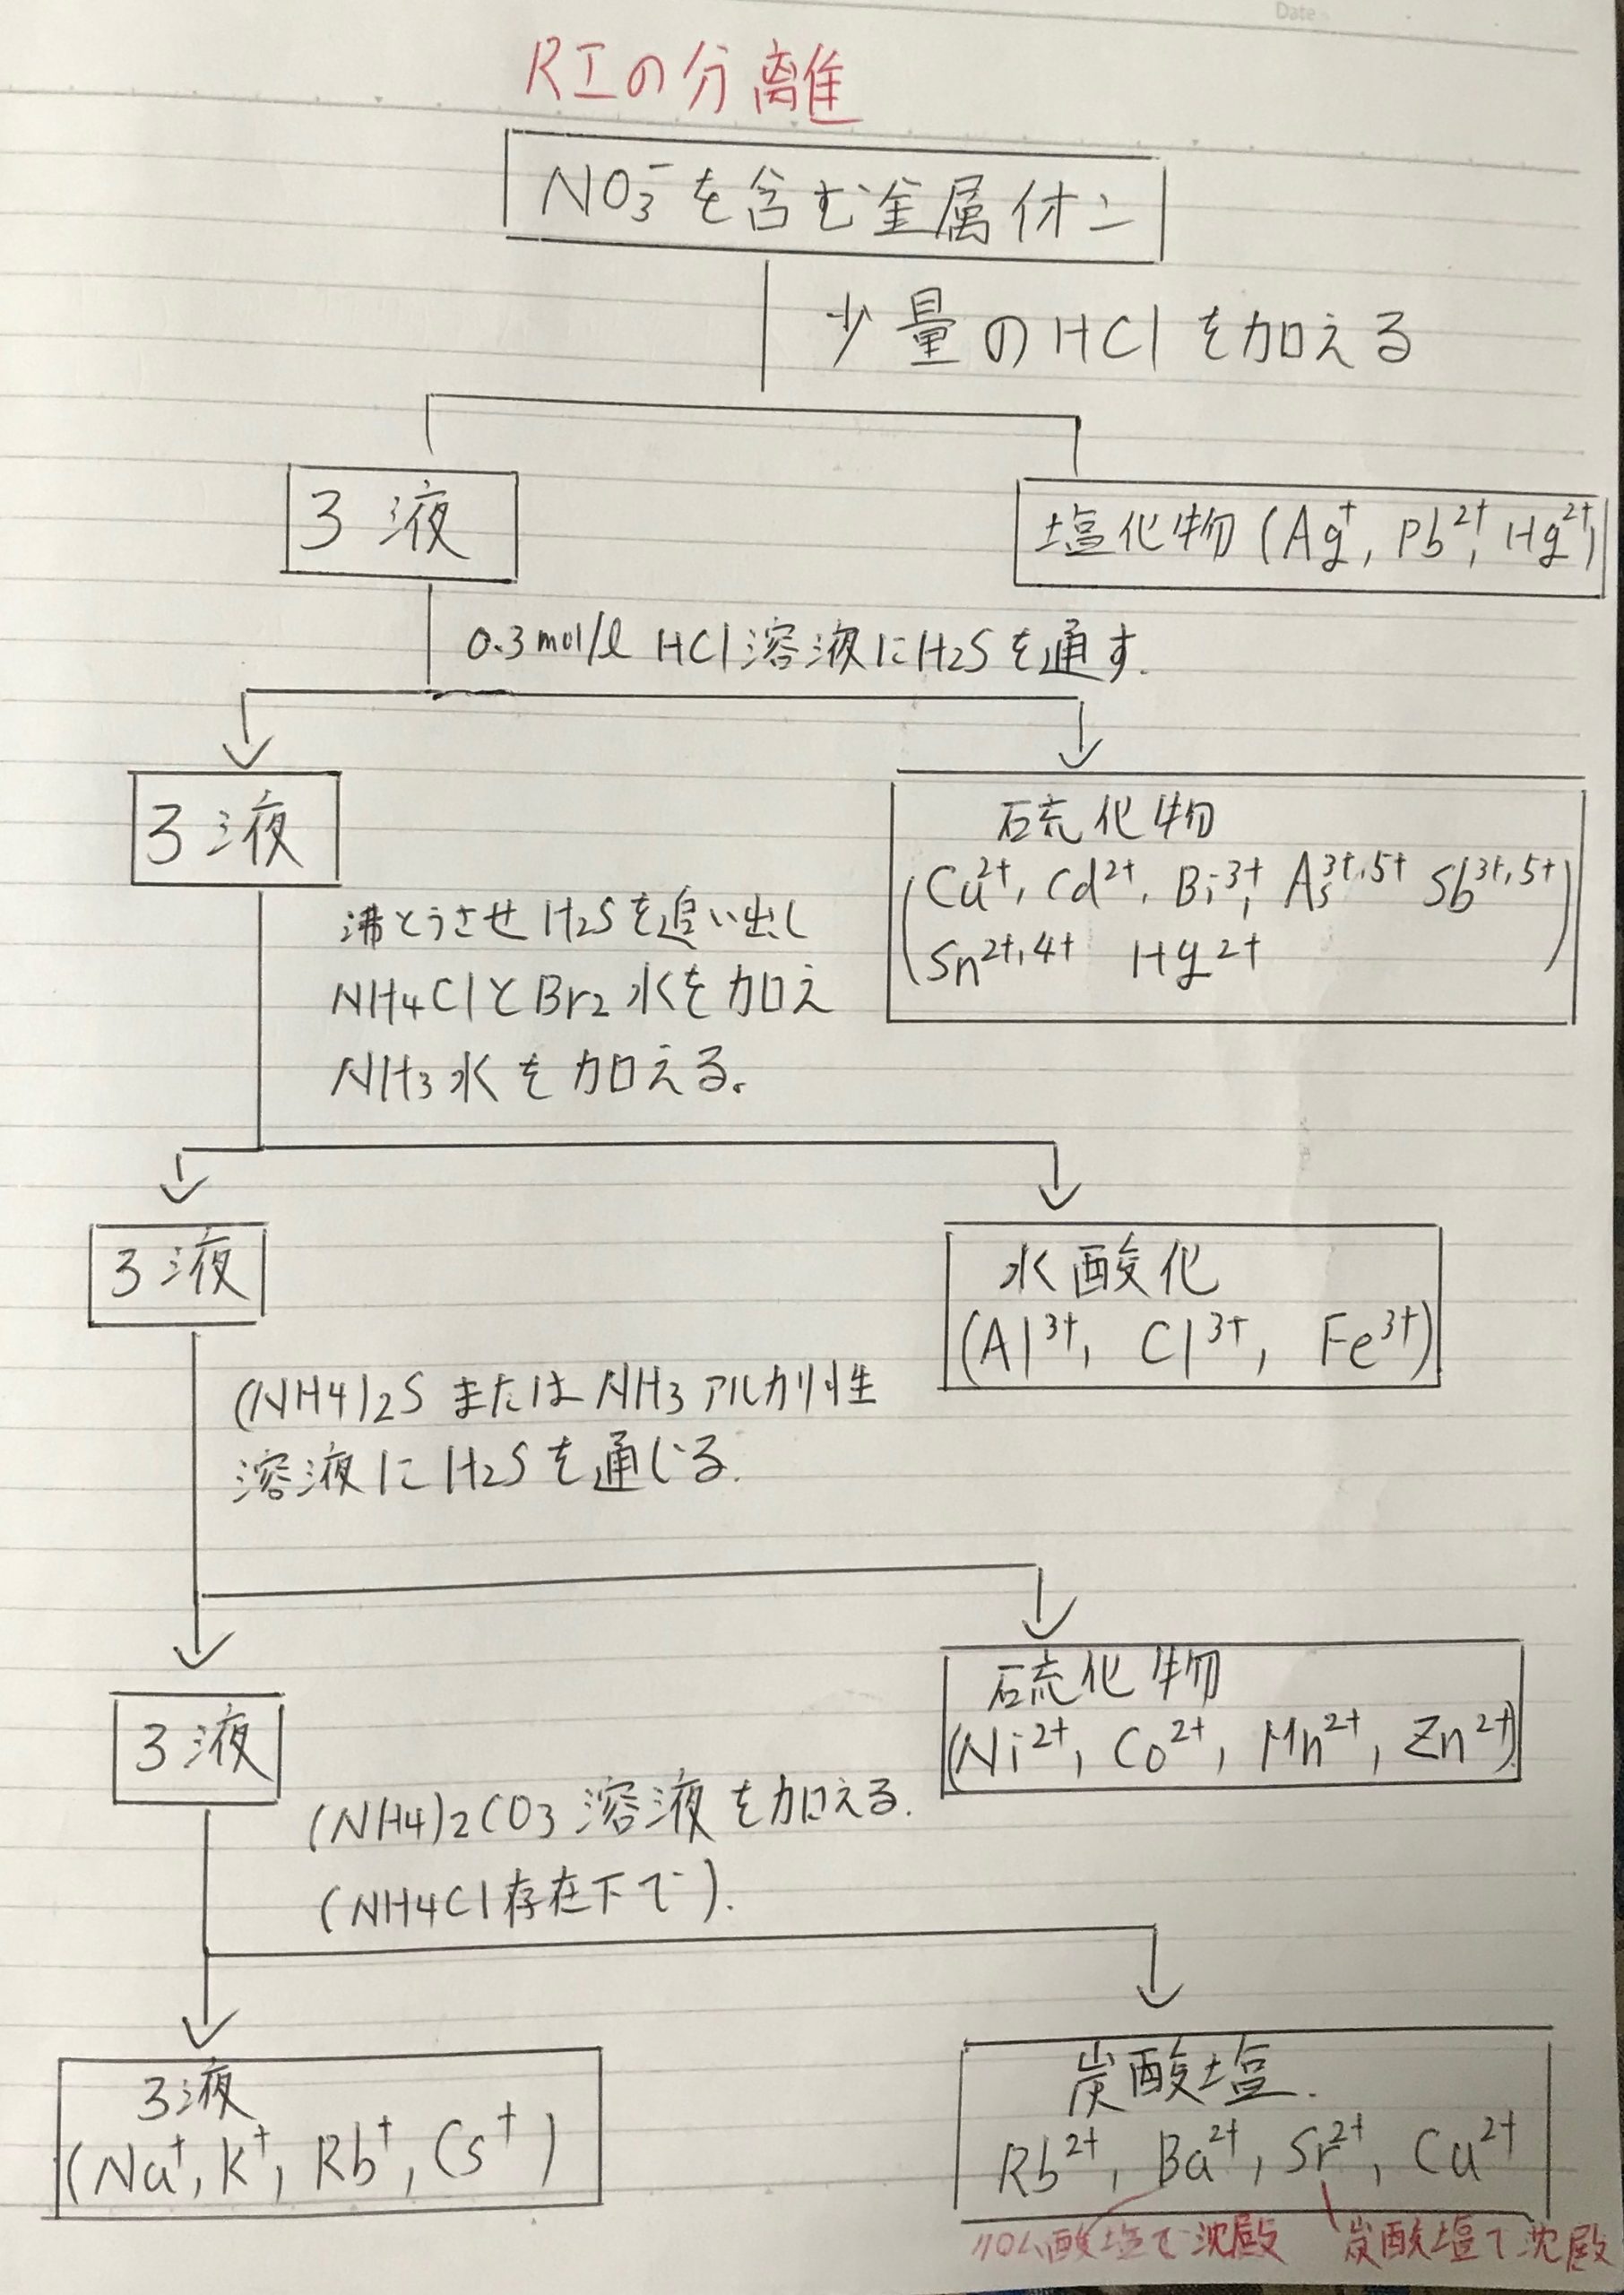 Date
RIの分離
NO₃⁻を含む金属イオン
少量のHClを加える
ろ液
塩化物(Ag⁺, Pb²⁺, Hg²⁺)
0.3mol/ℓ HCl溶液にH₂Sを通す.
ろ液
硫化物
(Cu²⁺, Cd²⁺, Bi³⁺, As³⁺,⁵⁺ Sb³⁺,⁵⁺
Sn²⁺,⁴⁺ Hg²⁺)
沸とうさせH₂Sを追い出し
NH₄ClとBr₂水を加え
NH₃水を加える。
ろ液
水酸化
(Al³⁺, Cl³⁺, Fe³⁺)
(NH₄)₂SまたはNH₃アルカリ性
溶液にH₂Sを通じる.
ろ液
硫化物
(Ni²⁺, Co²⁺, Mn²⁺, Zn²⁺)
(NH₄)₂CO₃溶液を加える.
(NH₄Cl存在下で).
ろ液
(Na⁺, K⁺, Rb⁺, Cs⁺)
炭酸塩.
Rb²⁺, Ba²⁺, Sr²⁺, Ca²⁺
クロム酸塩で沈殿
炭酸塩で沈殿